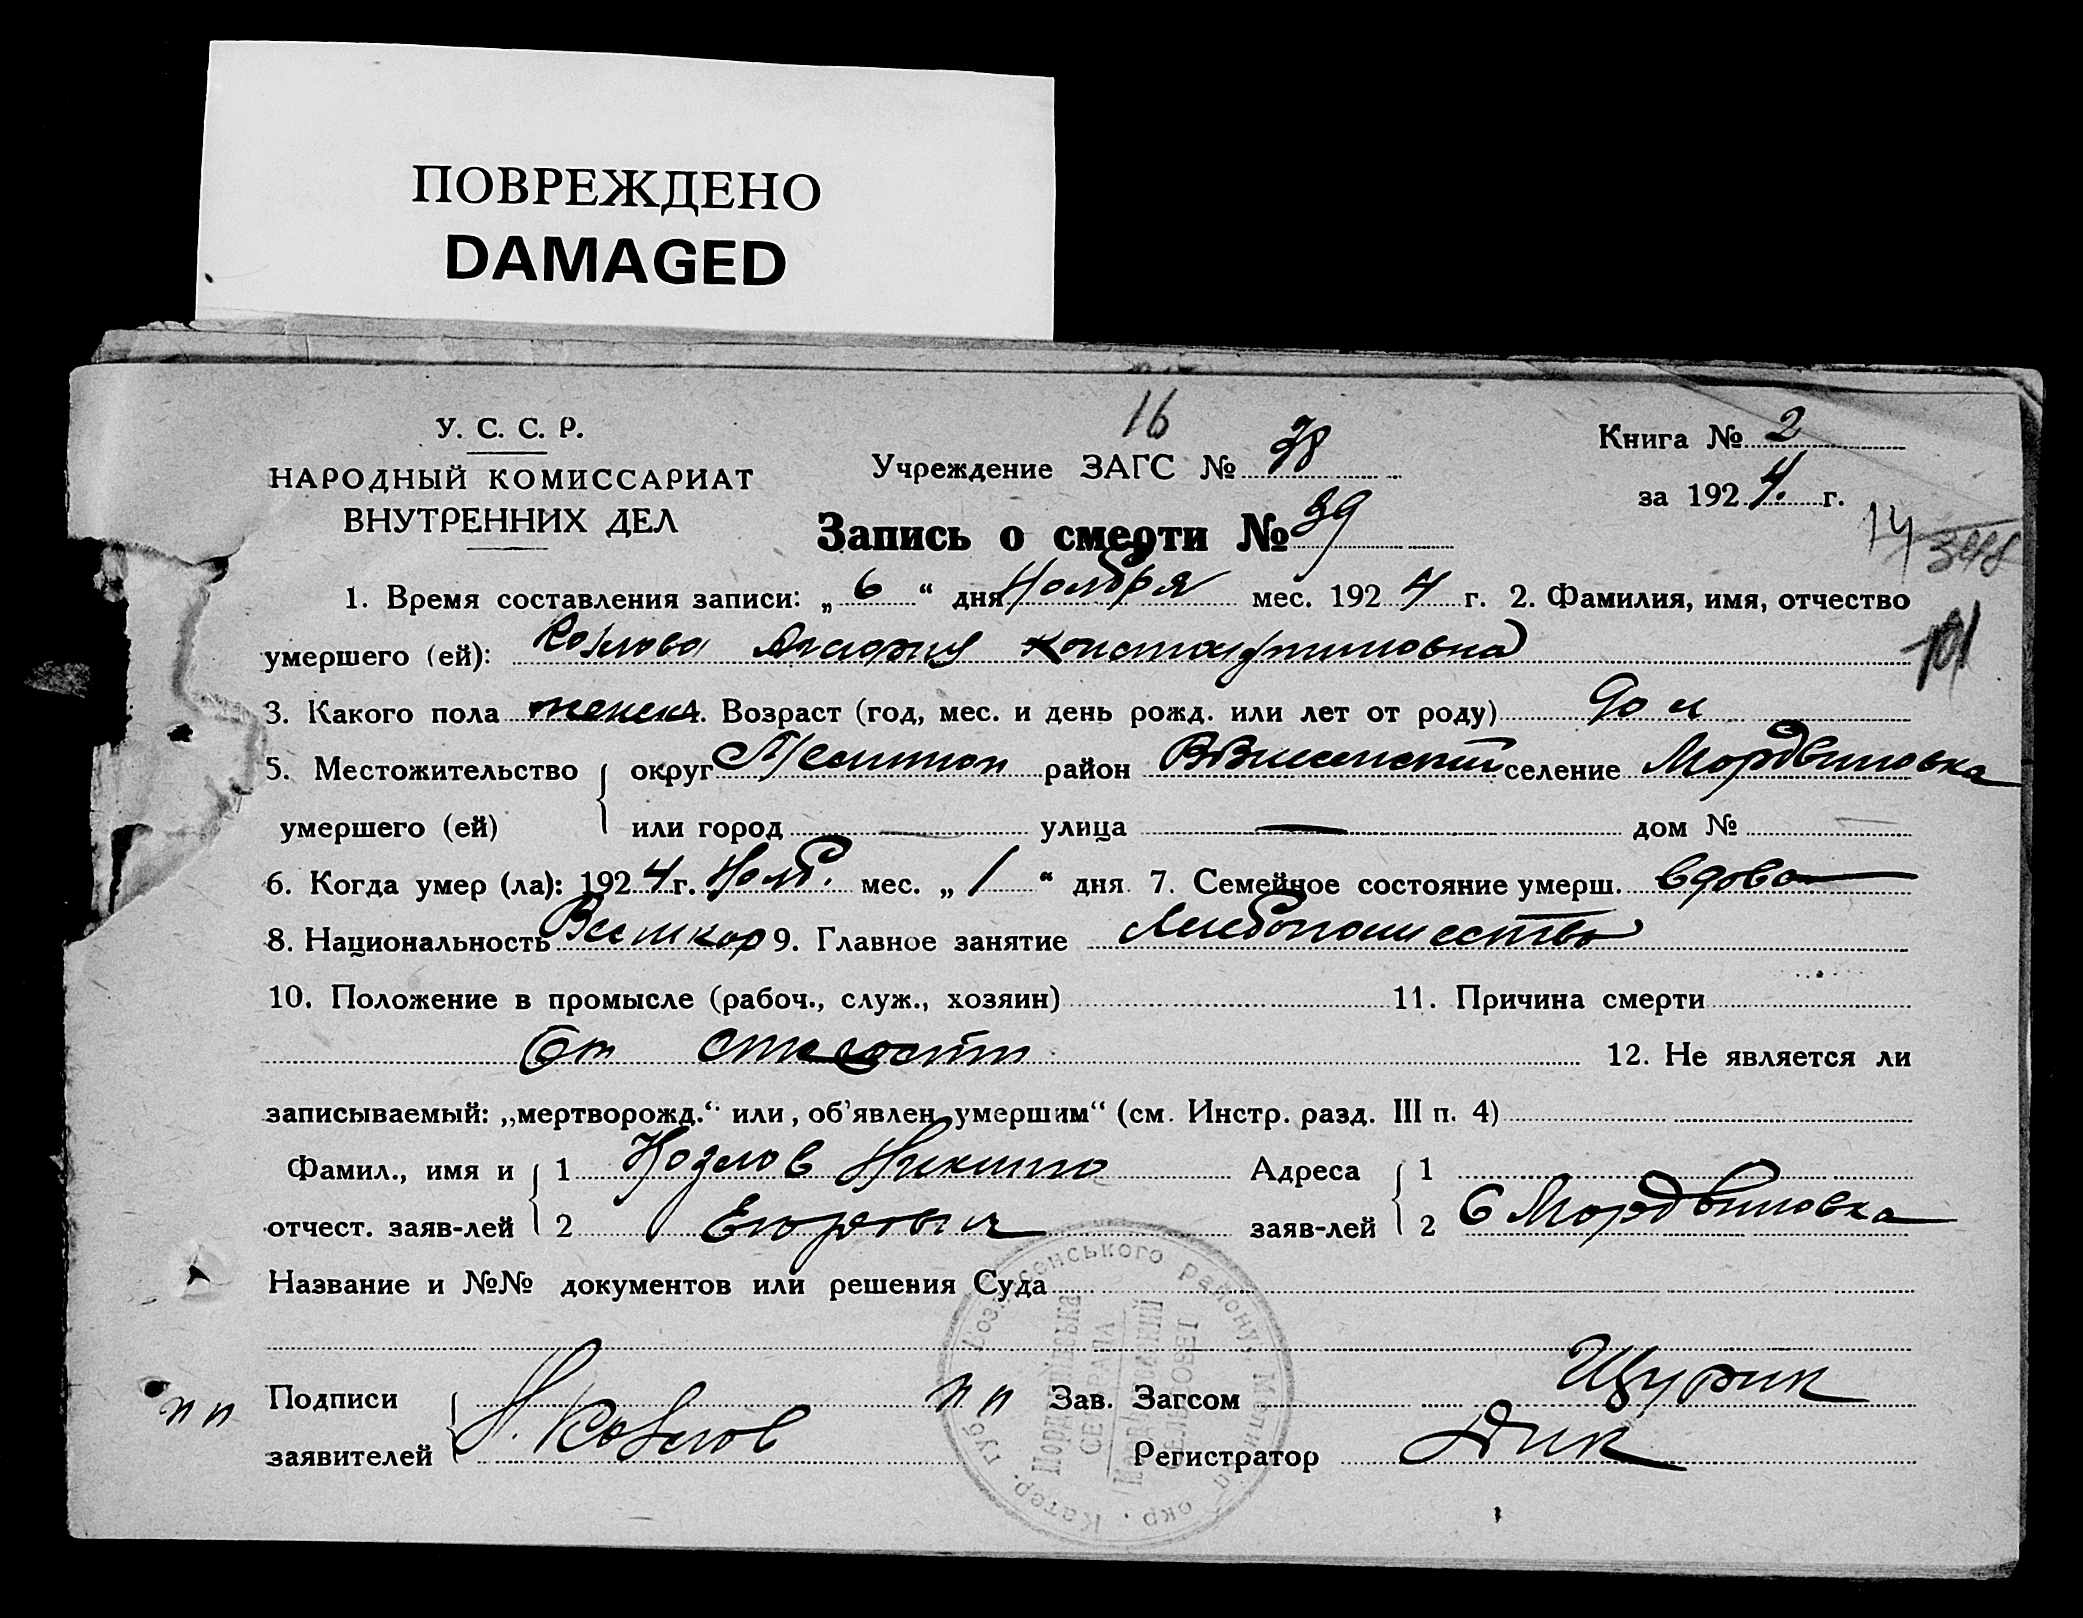 ПОВРЕЖДЕНО
DAMAGED
16
У. С. С. Р.
НАРОДНЫЙ КОМИССАРИАТ
ВНУТРЕННИХ ДЕЛ
Учреждение ЗАГС № 78
Книга № 2
за 1924 г.
Запись о смерти № 39
14
101
1. Время составления записи: „ 6 “ дня Ноября мес. 1924 г. 2. Фамилия, имя, отчество
умершего (ей): Козлова Константиновна
3. Какого пола женск. Возраст (год, мес. и день рожд. или лет от роду) 90 л
5. Местожительство округ Мелитоп район селение Мордвиновка
умершего (ей) или город — улица — дом № —
6. Когда умер (ла): 1924 г. Нояб. мес. „ 1 “ дня 7. Семейное состояние умерш. вдова
8. Национальность Великор 9. Главное занятие Хлебопашество
10. Положение в промысле (рабоч., служ., хозяин) 11. Причина смерти
От старости 12. Не является ли
записываемый: „мертворожд.“ или, об’явлен умершим“ (см. Инстр. разд. III п. 4)
Фамил., имя и 1 Козлов Никита Адреса 1
отчест. заяв-лей 2 Егорович заяв-лей 2 С Мордвиновка
Название и №№ документов или решения Суда
Подписи пп Зав. Загсом Щурик
пп заявителей Н. Козлов Регистратор Дик
району Меліт. окр. Катер. Губ.